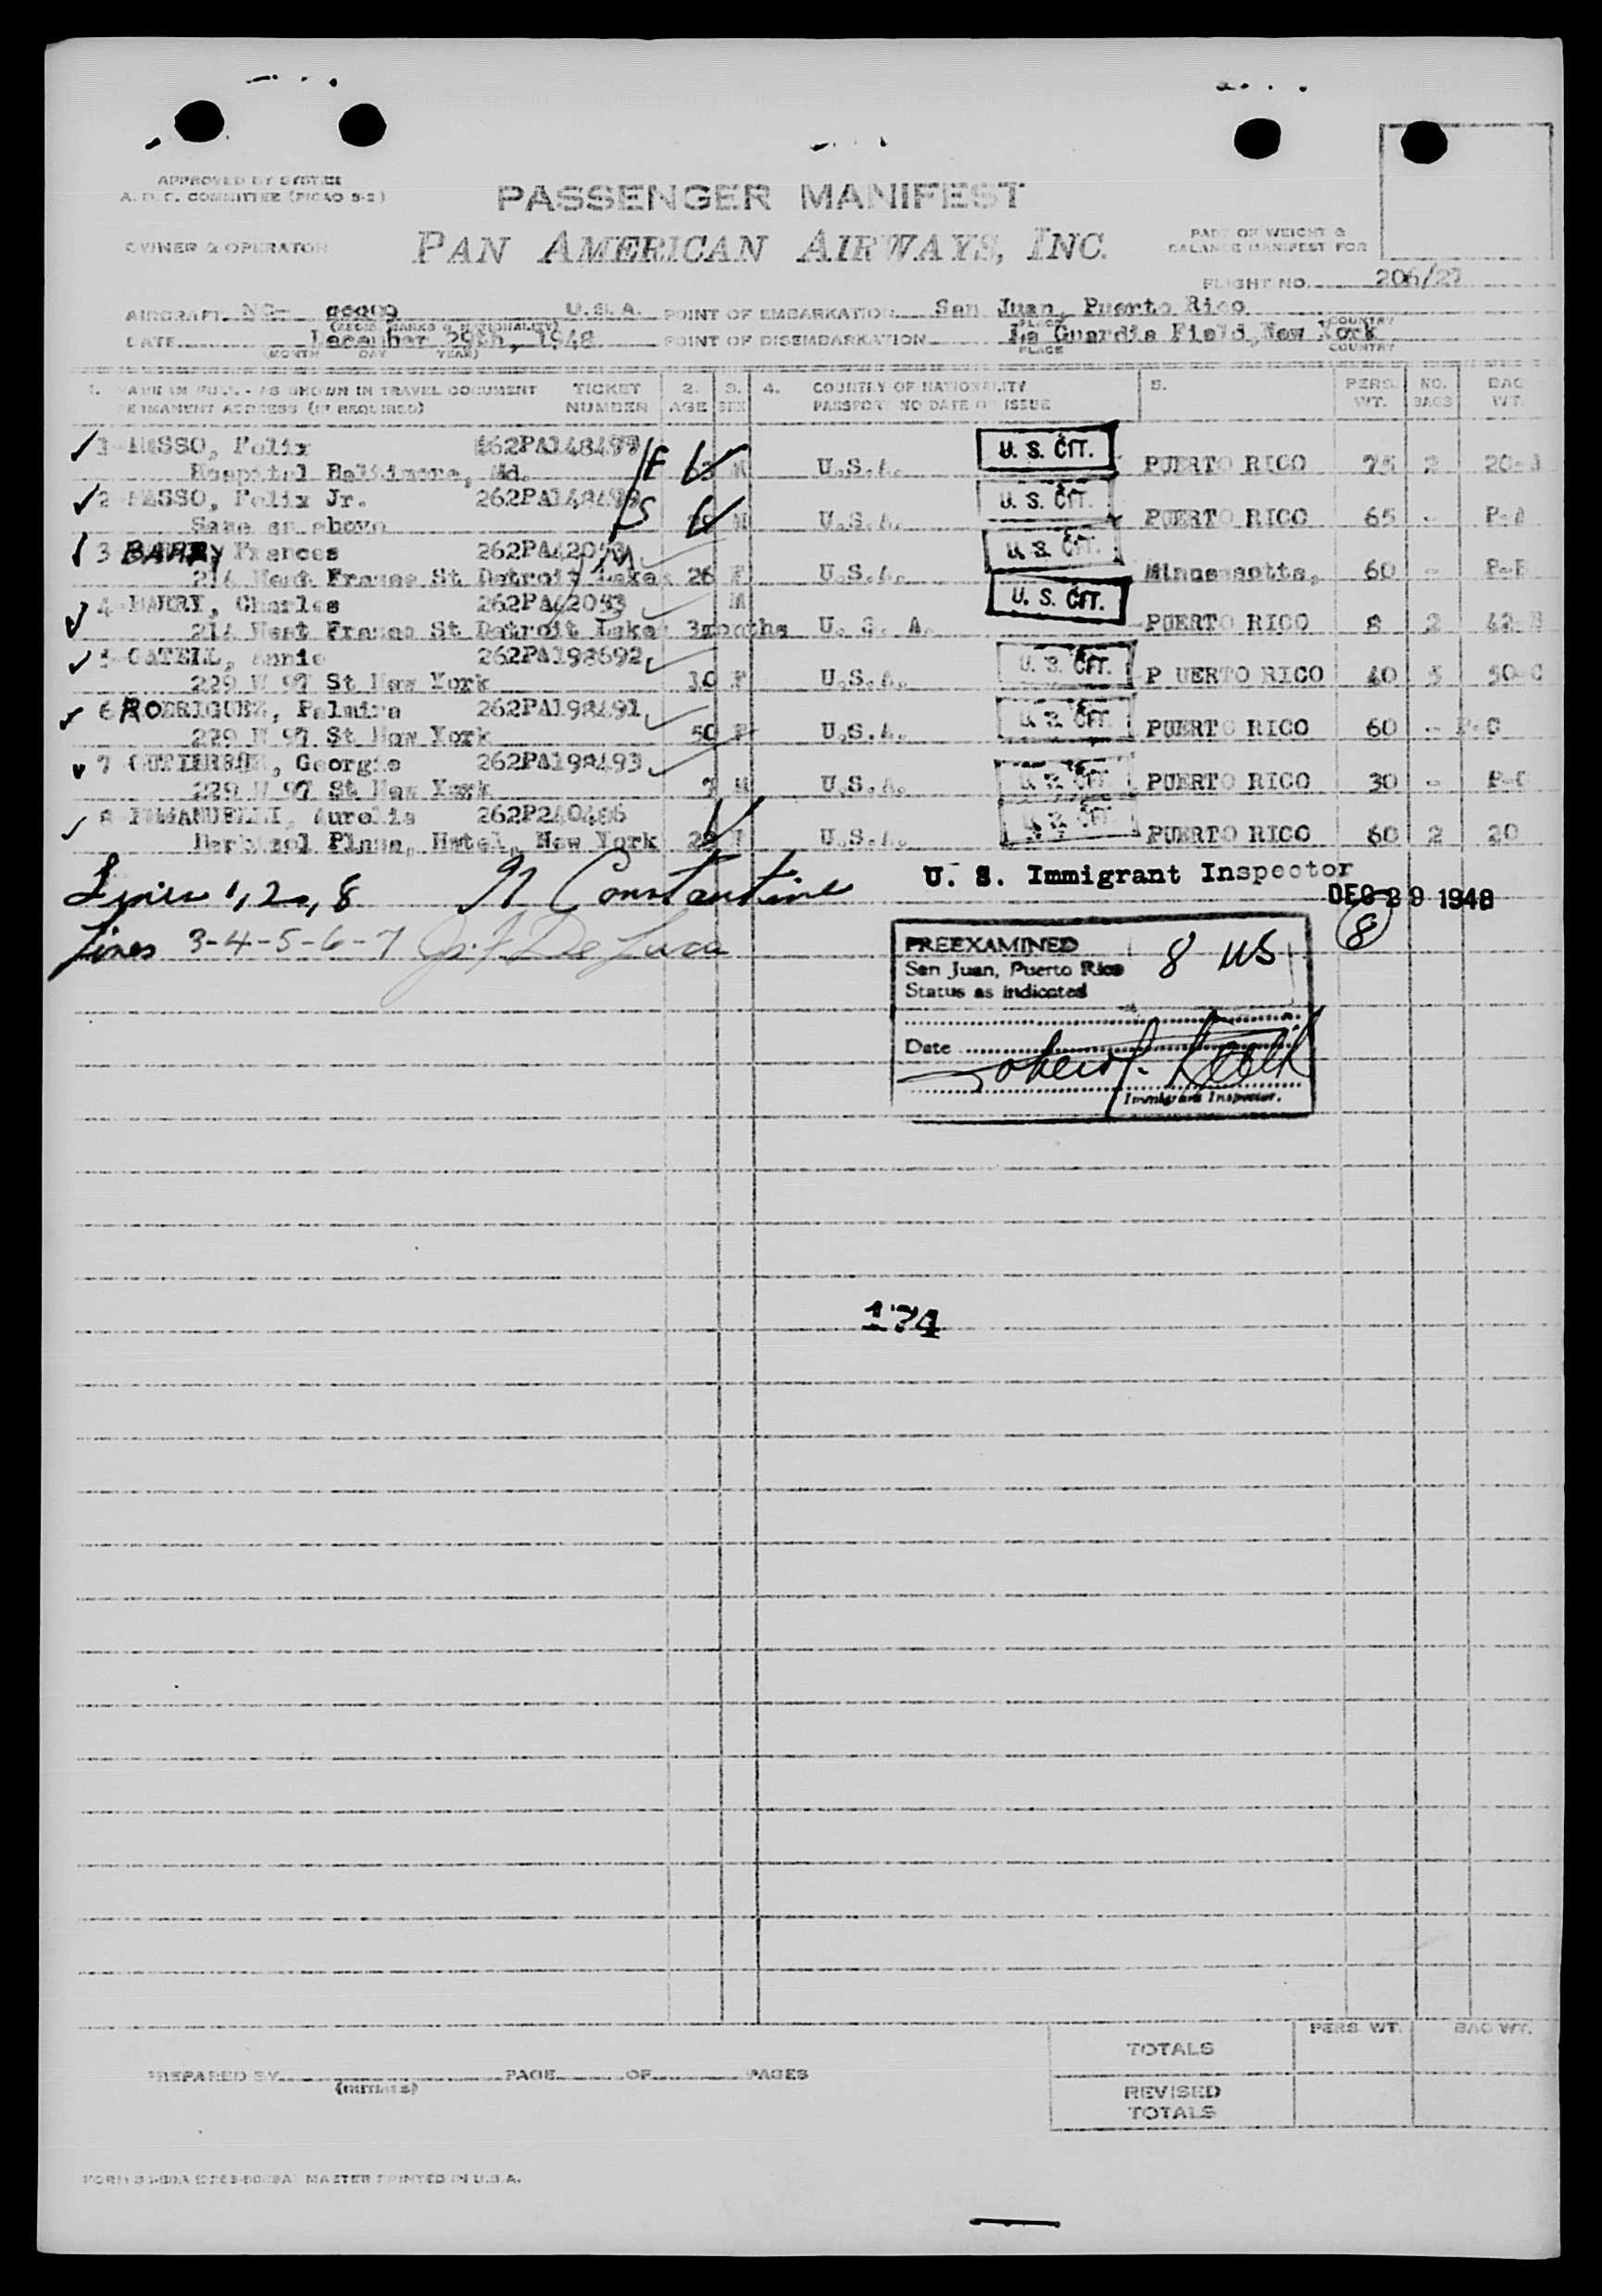 APPROVED BY SYSTEM
A. D. C. COMMITTEE (PICAO 9-2)
PASSENGER MANIFEST
OWNER & OPERATOR
PAN AMERICAN AIRWAYS, INC.
PART OF WEIGHT &
BALANCE MANIFEST FOR
FLIGHT NO. 206/27
AIRCRAFT NC- U.S.A. POINT OF EMBARKATION San Juan, Puerto Rico
(REGIS. MARKS & NATIONALITY) PLACE COUNTRY
DATE December 29th, 1948 POINT OF DISEMBARKATION La Guardia Field, New York
(MONTH DAY YEAR) PLACE COUNTRY
1. NAME IN FULL - AS SHOWN IN TRAVEL DOCUMENT TICKET 2. 3. 4. COUNTRY OF NATIONALITY 5. PERS. NO. BAG
PERMANENT ADDRESS (IF REQUIRED) NUMBER AGE SEX PASSPORT NO DATE OF ISSUE WT. BAGS WT.
1 MASSO, Felix 262PA148497 U. S. CIT.
Hospital Baltimore, Md. F 63 M U.S.A. PUERTO RICO 75 2 20-A
2 MASSO, Felix Jr. 262PA148498 U. S. CIT.
Same as above S M U.S.A. PUERTO RICO 65 - P-A
3 BARRY Frances 262PA42053 M U. S. CIT.
214 West Frazee St Detroit Lakes 26 F U.S.A. Minnessotta, 60 - P-B
4 BARRY, Charles 262PA42053 M U. S. CIT.
214 West Frazee St Detroit Lakes 3months U. S. A. PUERTO RICO 8 2 42-B
5 CATELL, Annie 262PA198692 U. S. CIT.
229 W 97 St New York 30 F U.S.A. P UERTO RICO 40 5 50-C
6 RODRIGUEZ, Palmira 262PA198491 U. S. CIT.
229 W 97 St New York 50 F U.S.A. PUERTO RICO 60 - P-C
7 GUTIERREZ, Georgie 262PA198493 U. S. CIT.
229 W 97 St New York 7 M U.S.A. PUERTO RICO 30 - P-C
8 EMMANUELLI, Aurelia 262P240486 U. S. CIT.
Barbizol Plaza, Hotel, New York 22 F U.S.A. PUERTO RICO 60 2 20
Lines 1, 2, 8 N Constantine U. S. Immigrant Inspector
DEC 29 1948
8
Lines 3-4-5-6-7 De Luca
PREEXAMINED 8 US
San Juan, Puerto Rico
Status as indicated
Date
Immigrant Inspector.
174
PERS. WT. BAG WT.
TOTALS
PREPARED BY (INITIALS) PAGE OF PAGES
REVISED
TOTALS
MASTER PRINTED IN U.S.A.